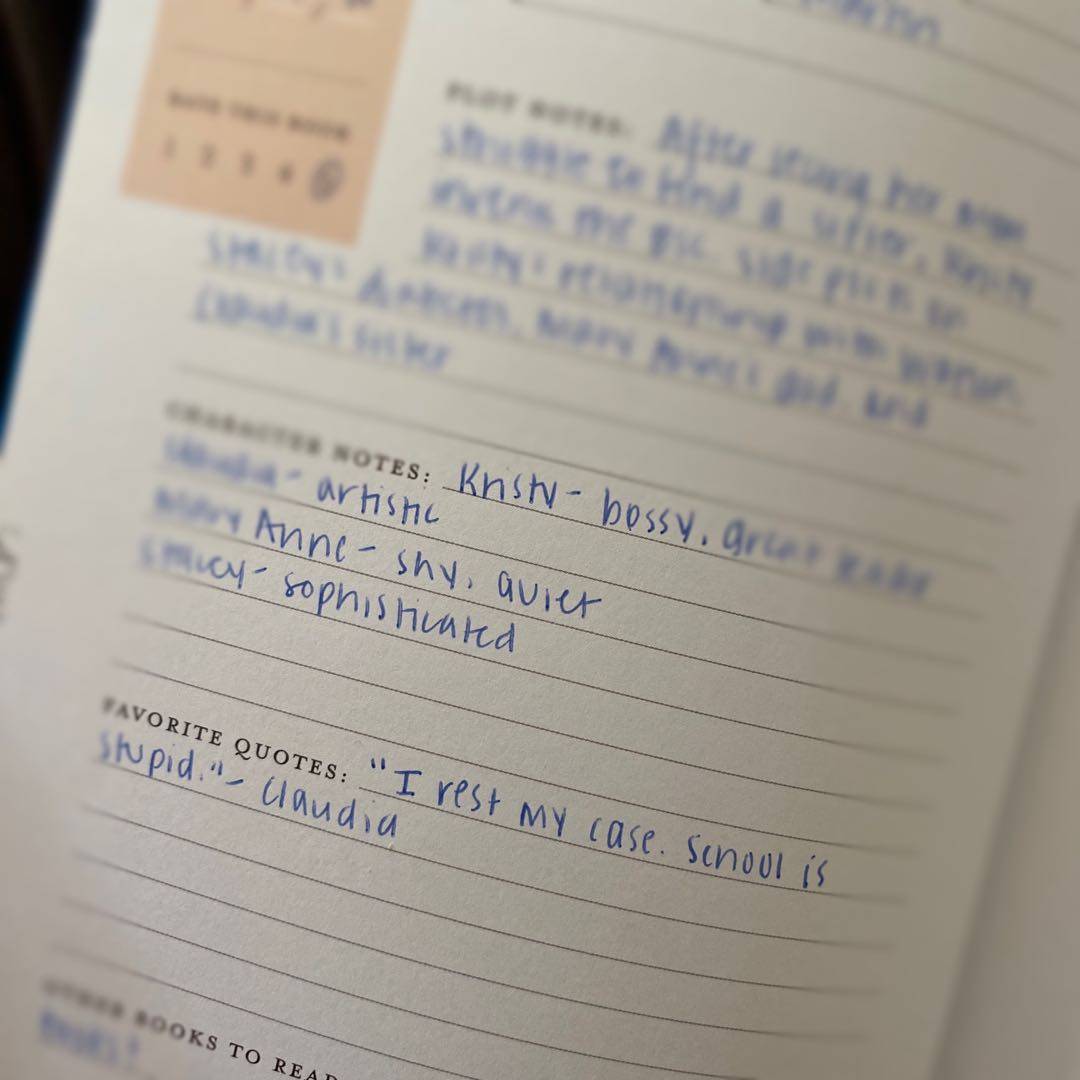 RATE THIS BOOK
1 2 3 4
PLOT NOTES: After seeing her mom
struggle to find a sitter, Kristy
invents the BSC. Side plots on
Kristy's relationship with Watson,
Stacey's diabetes, Mary Anne's dad, and
Claudia's sister
CHARACTER NOTES: Kristy- bossy, great leader
Claudia- artistic
Mary Anne- shy, quiet
Stacey- sophisticated
FAVORITE QUOTES: "I rest my case. School is
stupid."- Claudia
OTHER BOOKS TO READ